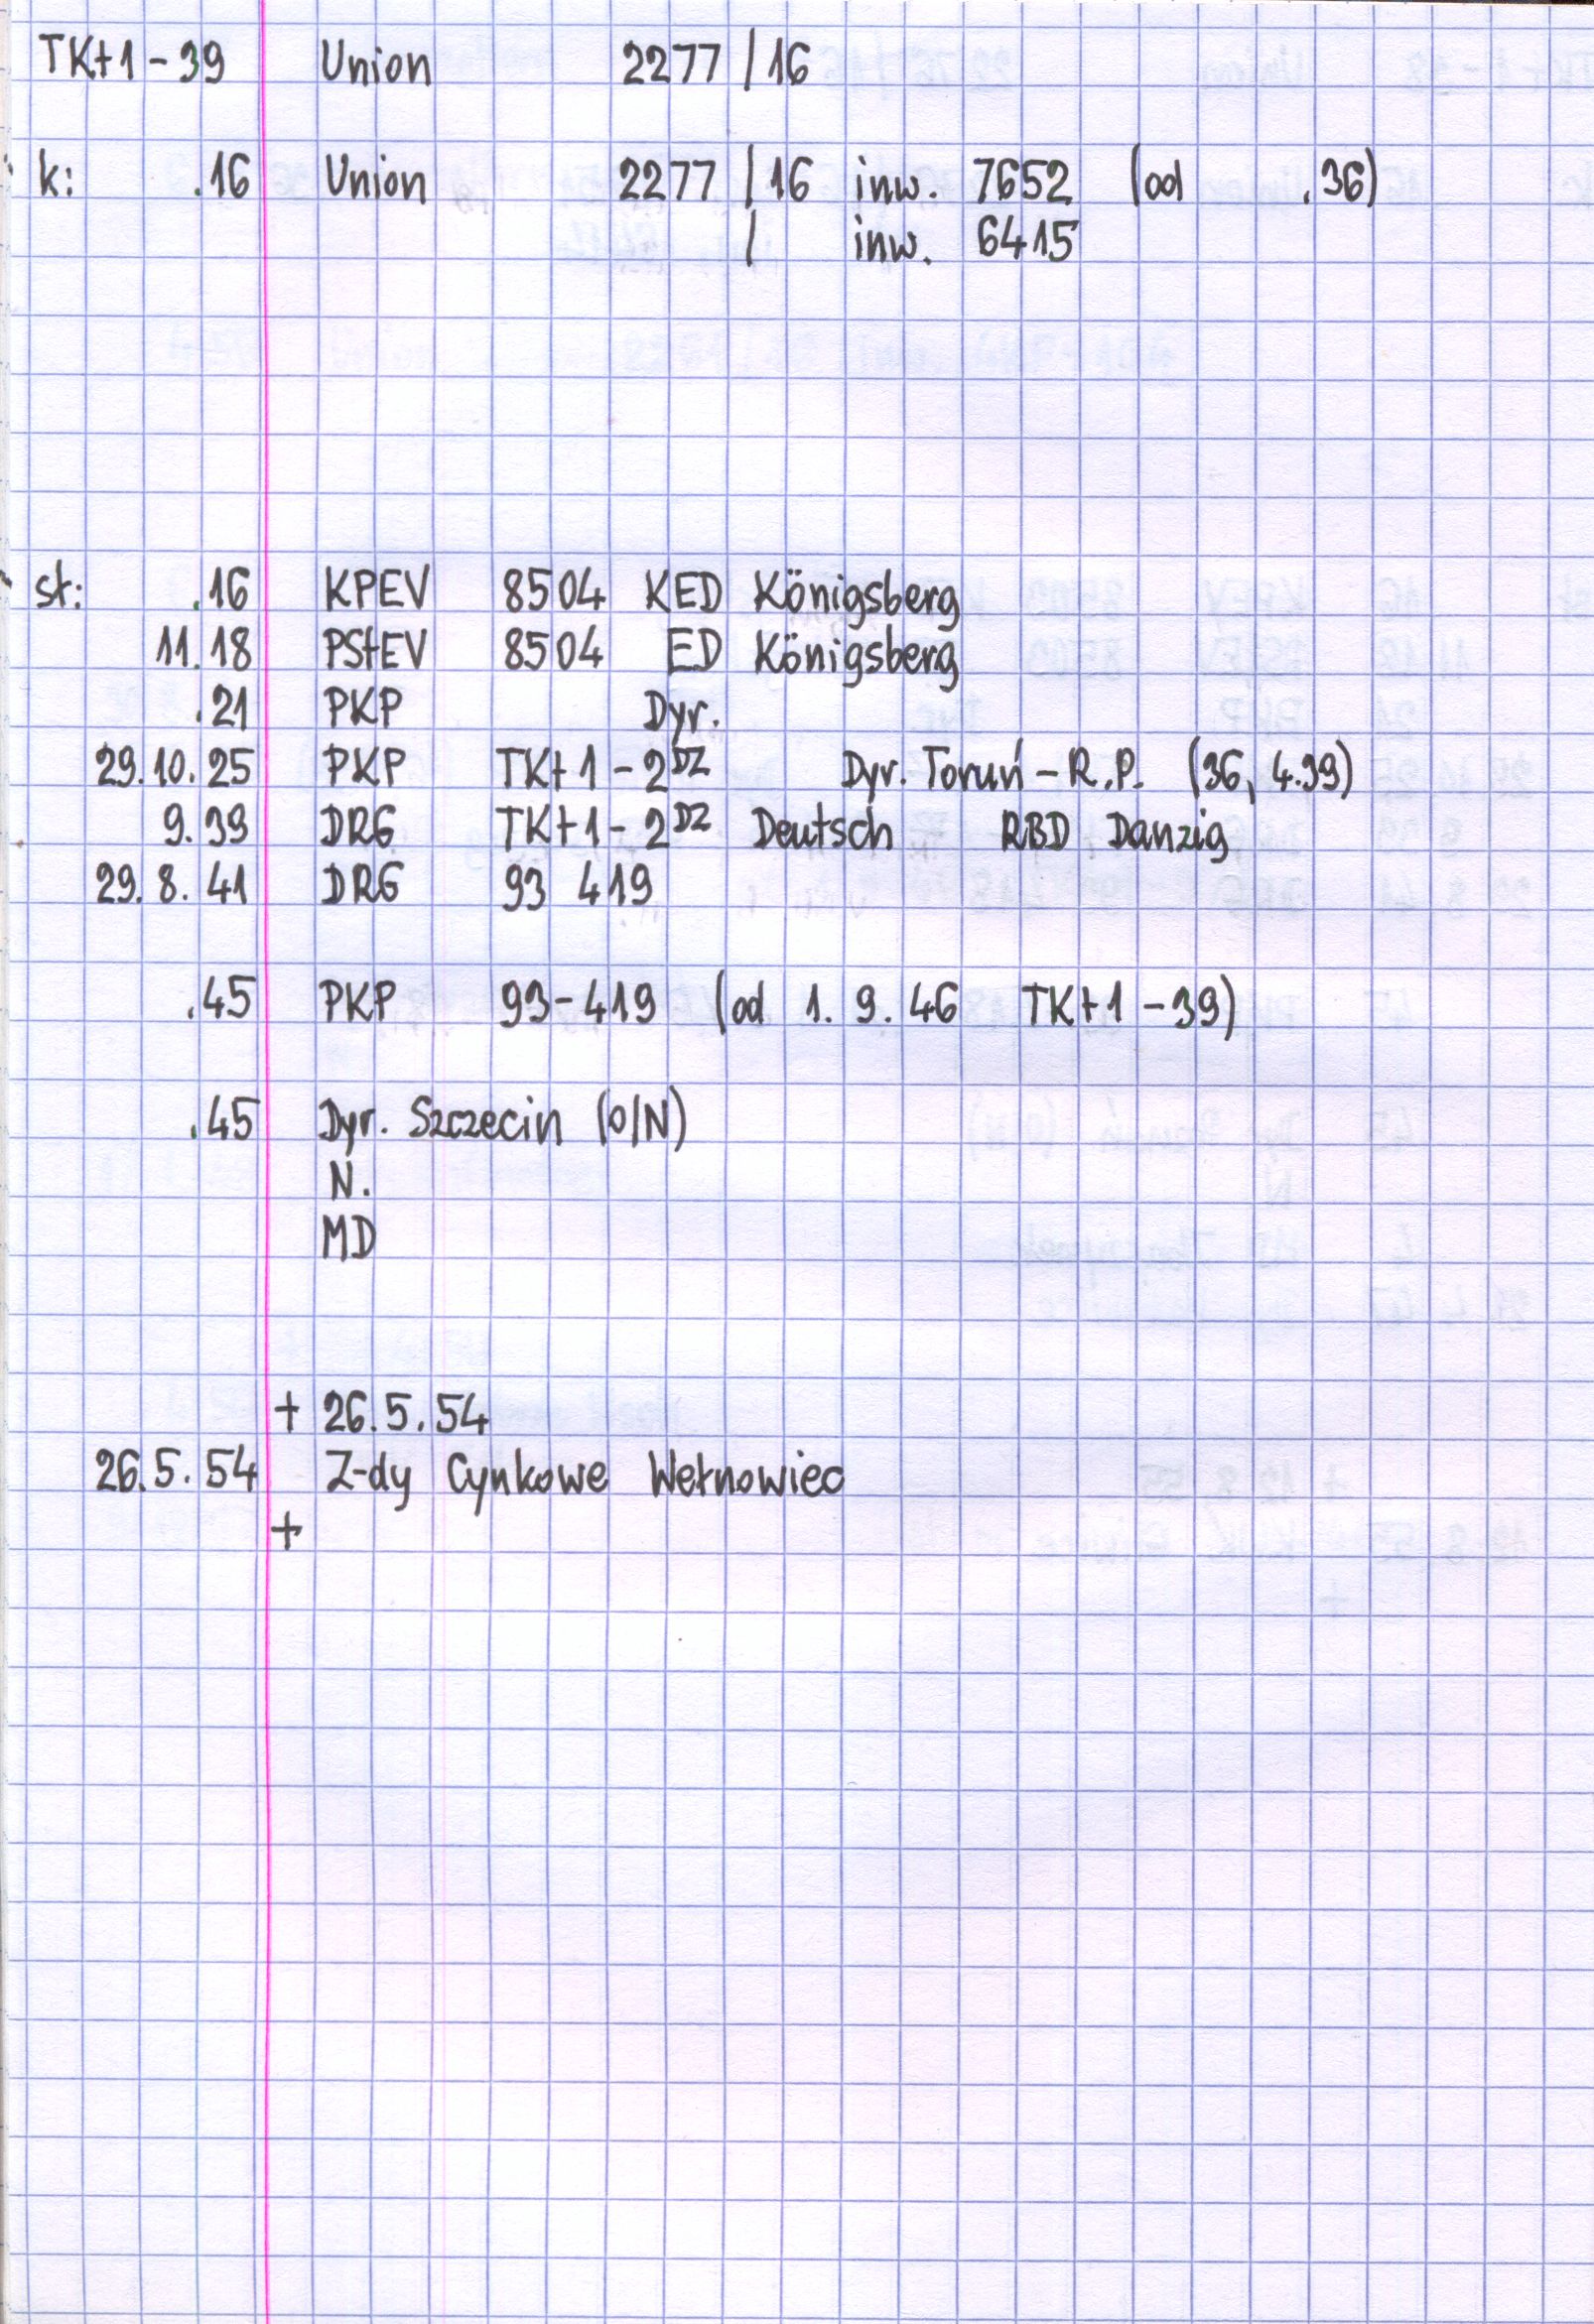 TKt1-39 Union 2277/16
k: .16 Union 2277/16 inw. 7652 (od .36)
/ inw. 6415
st: .16 KPEV 8504 KED Königsberg
11.18 PStEV 8504 ED Königsberg
.21 PKP Dyr.
29.10.25 PKP TKt1-2DZ Dyr. Toruń-R.P. (36, 4.39)
9.39 DRG TKt1-2DZ Deutsch RBD Danzig
29.8.41 DRG 93 419
.45 PKP 93-419 (od 1.9.46 TKt1-39)
.45 Dyr. Szczecin (O/N)
N.
MD
+ 26.5.54
26.5.54 Z-dy Cynkowe Wełnowiec
+